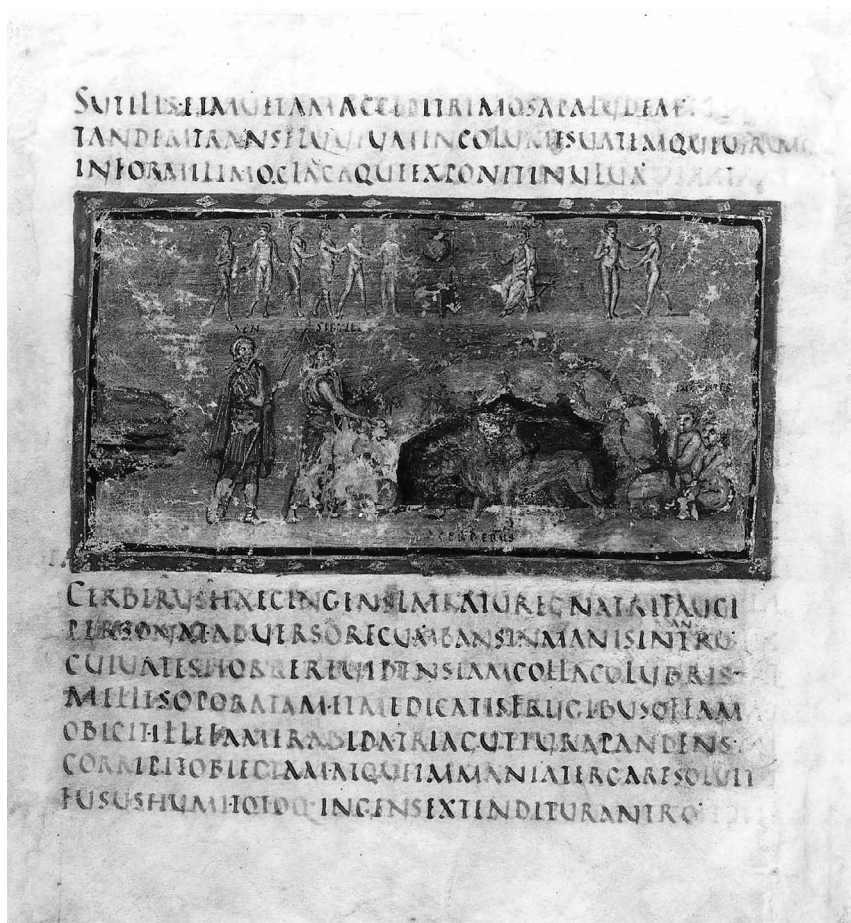 SUTILISETMULTAMACCEPITRIMOSAPALUDEM
TANDEMTRANSFLUUIUMINCOLUMISUATEMQUEUIRUMQ
INFORMILIMOGLAUCAQUEEXPONITINULUA
AEN SIBYLL
CERBERUS
CERBERUSHAECINGENSLATRATUREGNATRIFAUCI
AN
PERSONATADUERSORECUBANSINMANISINTRO
CUIUATESHORREREUIDENSIAMCOLLACOLUBRIS
MELLESOPORATAMETMEDICATISFRUGIBUSOFFAM
OBICITILLEFAMERABIDATRIAGUTTURAPANDENS
CORRIPITOBIECTAMATQUEIMMANIATERGARESOLUIT
FUSUSHUMITOTOQ·INGENSEXTENDITURANTRO